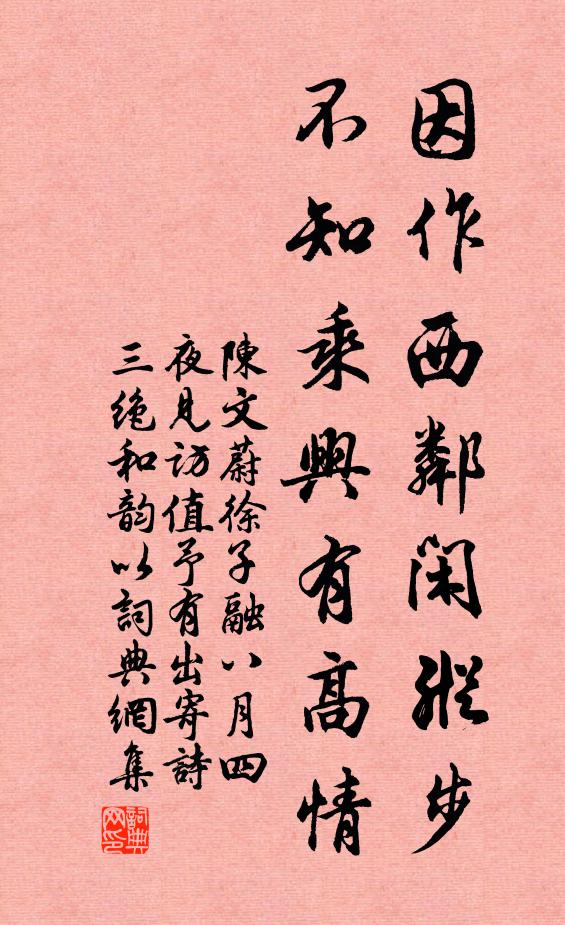 因作西鄰閑縱步
不知乘興有高情
陳文蔚徐子融八月四
夜見访值予有出寄詩
三绝和韵以詞典網集
詞典
网印